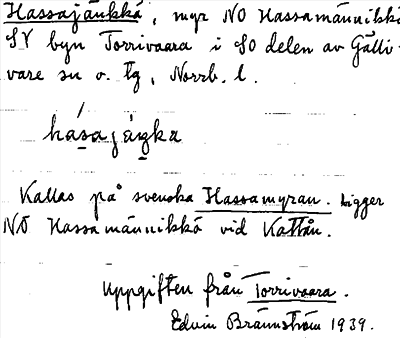 Hassajänkkä, myr NO Hassamännikkö
SV byn Torrivaara i SO delen av Gälli-
vare sn o. tg, Norrb. l.
hásajäŋka
Kallas på svenska Hassamyran. Ligger
NO Hassamännikkö vid Kattån.
Uppgiften från Torrivaara.
Edvin Brännström 1939.